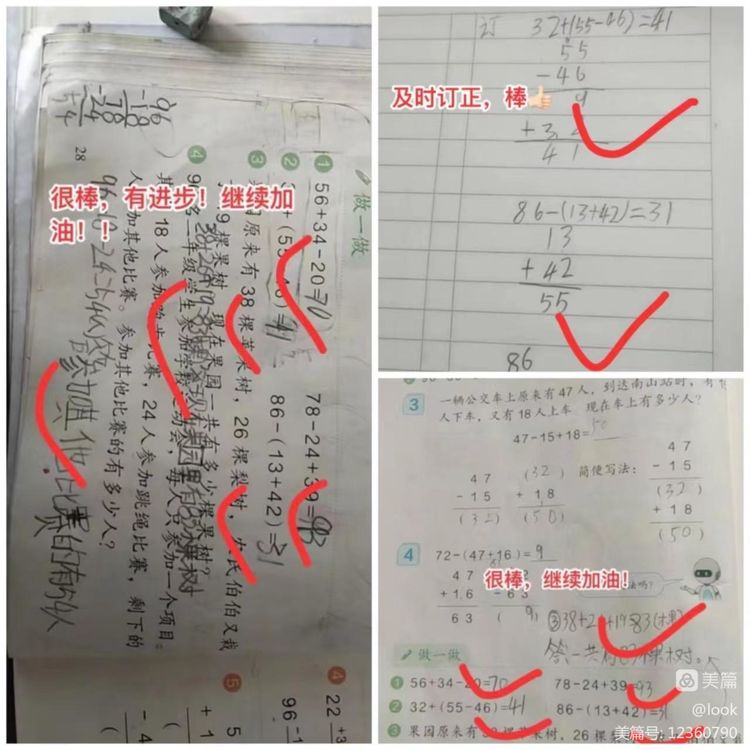 做一做
1 56+34-20=70 78-24+39=93
2 +(55-46)=41 86-(13+42)=31
3 果园原来有38棵苹果树，26棵梨树，农民伯伯又栽
9棵果树，现在果园一共有多少棵果树？
4
18人参加跑步比赛，24人参加跳绳比赛，剩下的
人参加其他比赛。参加其他比赛的有多少人？
96-18-24=54(人)
答：参加其他比赛的有54人
28
96
-18
78
-24
54
很棒，有进步！继续加
油！！
4
22+3
96-1
5
订 32+(55-46)=41
55
-46
9
+32
41
及时订正，棒👍🏻
86-(13+42)=31
13
+42
55
86
3 一辆公交车上原来有47人，到达南山站时，有
人下车，又有18人上车 现在车上有多少人？
47-15+18=50
47 (32) 简便写法： 47
-15 +18 -15
(32) (50) (32)
+18
(50)
4 72-(47+16)=9
47
+16 -63
63 (9)
法吗？
很棒，继续加油！
③38+2 +19=83(棵)
答：一共有83棵树。
做一做
1 56+34-20=70 78-24+39=93
2 32+(55-46)=41 86-(13+42)=31
3 果园原来有38棵苹果树，26棵梨
美篇
@look
美篇号：12360790